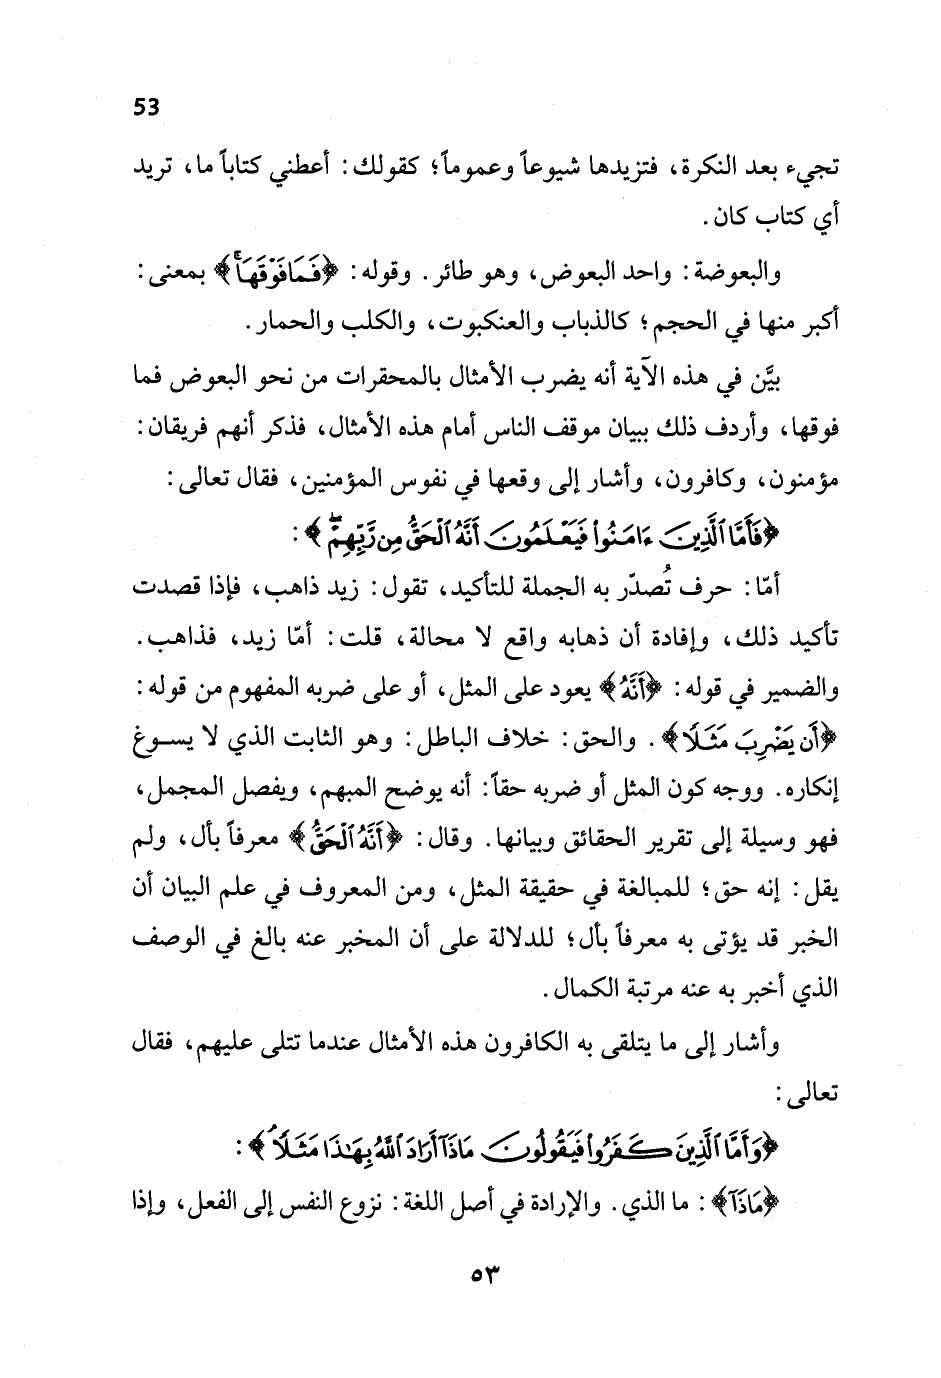 53
تجيء بعد النكرة، فتزيدها شيوعاً وعموماً؛ كقولك: أعطني كتاباً ما، تريد
أي كتاب كان.
والبعوضة: واحد البعوض، وهو طائر. وقوله: ﴿فَمَا فَوْقَهَا﴾ بمعنى:
أكبر منها في الحجم؛ كالذباب والعنكبوت، والكلب والحمار.
بيَّن في هذه الآية أنه يضرب الأمثال بالمحقرات من نحو البعوض فما
فوقها، وأردف ذلك ببيان موقف الناس أمام هذه الأمثال، فذكر أنهم فريقان:
مؤمنون، وكافرون، وأشار إلى وقعها في نفوس المؤمنين، فقال تعالى:
﴿فَأَمَّا ٱلَّذِينَ ءَامَنُوا۟ فَيَعْلَمُونَ أَنَّهُ ٱلْحَقُّ مِن رَّبِّهِمْ ۖ﴾:
أمّا: حرف تُصدّر به الجملة للتأكيد، تقول: زيد ذاهب، فإذا قصدت
تأكيد ذلك، وإفادة أن ذهابه واقع لا محالة، قلت: أمّا زيد، فذاهب.
والضمير في قوله: ﴿أَنَّهُ﴾ يعود على المثل، أو على ضربه المفهوم من قوله:
﴿أَن يَضْرِبَ مَثَلًا﴾. والحق: خلاف الباطل: وهو الثابت الذي لا يسوغ
إنكاره. ووجه كون المثل أو ضربه حقاً: أنه يوضح المبهم، ويفصل المجمل،
فهو وسيلة إلى تقرير الحقائق وبيانها. وقال: ﴿أَنَّهُ ٱلْحَقُّ﴾ معرفاً بأل، ولم
يقل: إنه حق؛ للمبالغة في حقيقة المثل، ومن المعروف في علم البيان أن
الخبر قد يؤتى به معرفاً بأل؛ للدلالة على أن المخبر عنه بالغ في الوصف
الذي أخبر به عنه مرتبة الكمال.
وأشار إلى ما يتلقى به الكافرون هذه الأمثال عندما تتلى عليهم، فقال
تعالى:
﴿وَأَمَّا ٱلَّذِينَ كَفَرُوا۟ فَيَقُولُونَ مَاذَآ أَرَادَ ٱللَّهُ بِهَـٰذَا مَثَلًا ۘ﴾:
﴿مَاذَآ﴾: ما الذي. والإرادة في أصل اللغة: نزوع النفس إلى الفعل، وإذا
٥٣